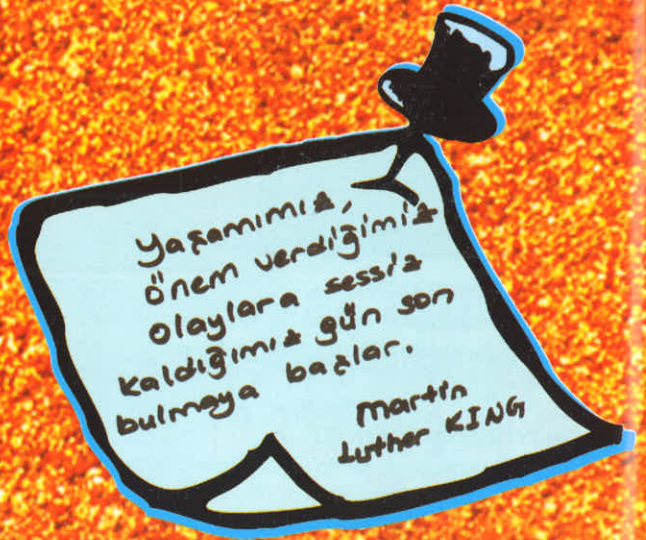 Yaşamımız,
önem verdiğimiz
olaylara sessiz
kaldığımız gün son
bulmaya başlar.
Martin
Luther KING